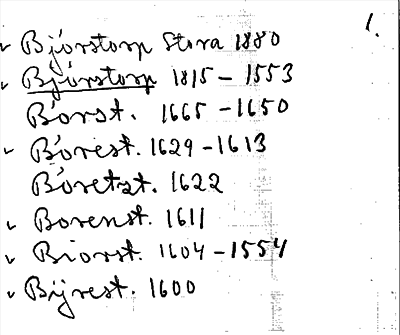 1.
Bjórstorp Stora 1880
Bjórstorp 1815 – 1553
Bórst. 1665 – 1650
Bórest. 1629 – 1613
Bóretzt. 1622
Borenst. 1611
Biorst. 1604 – 1554
Bijrest. 1600